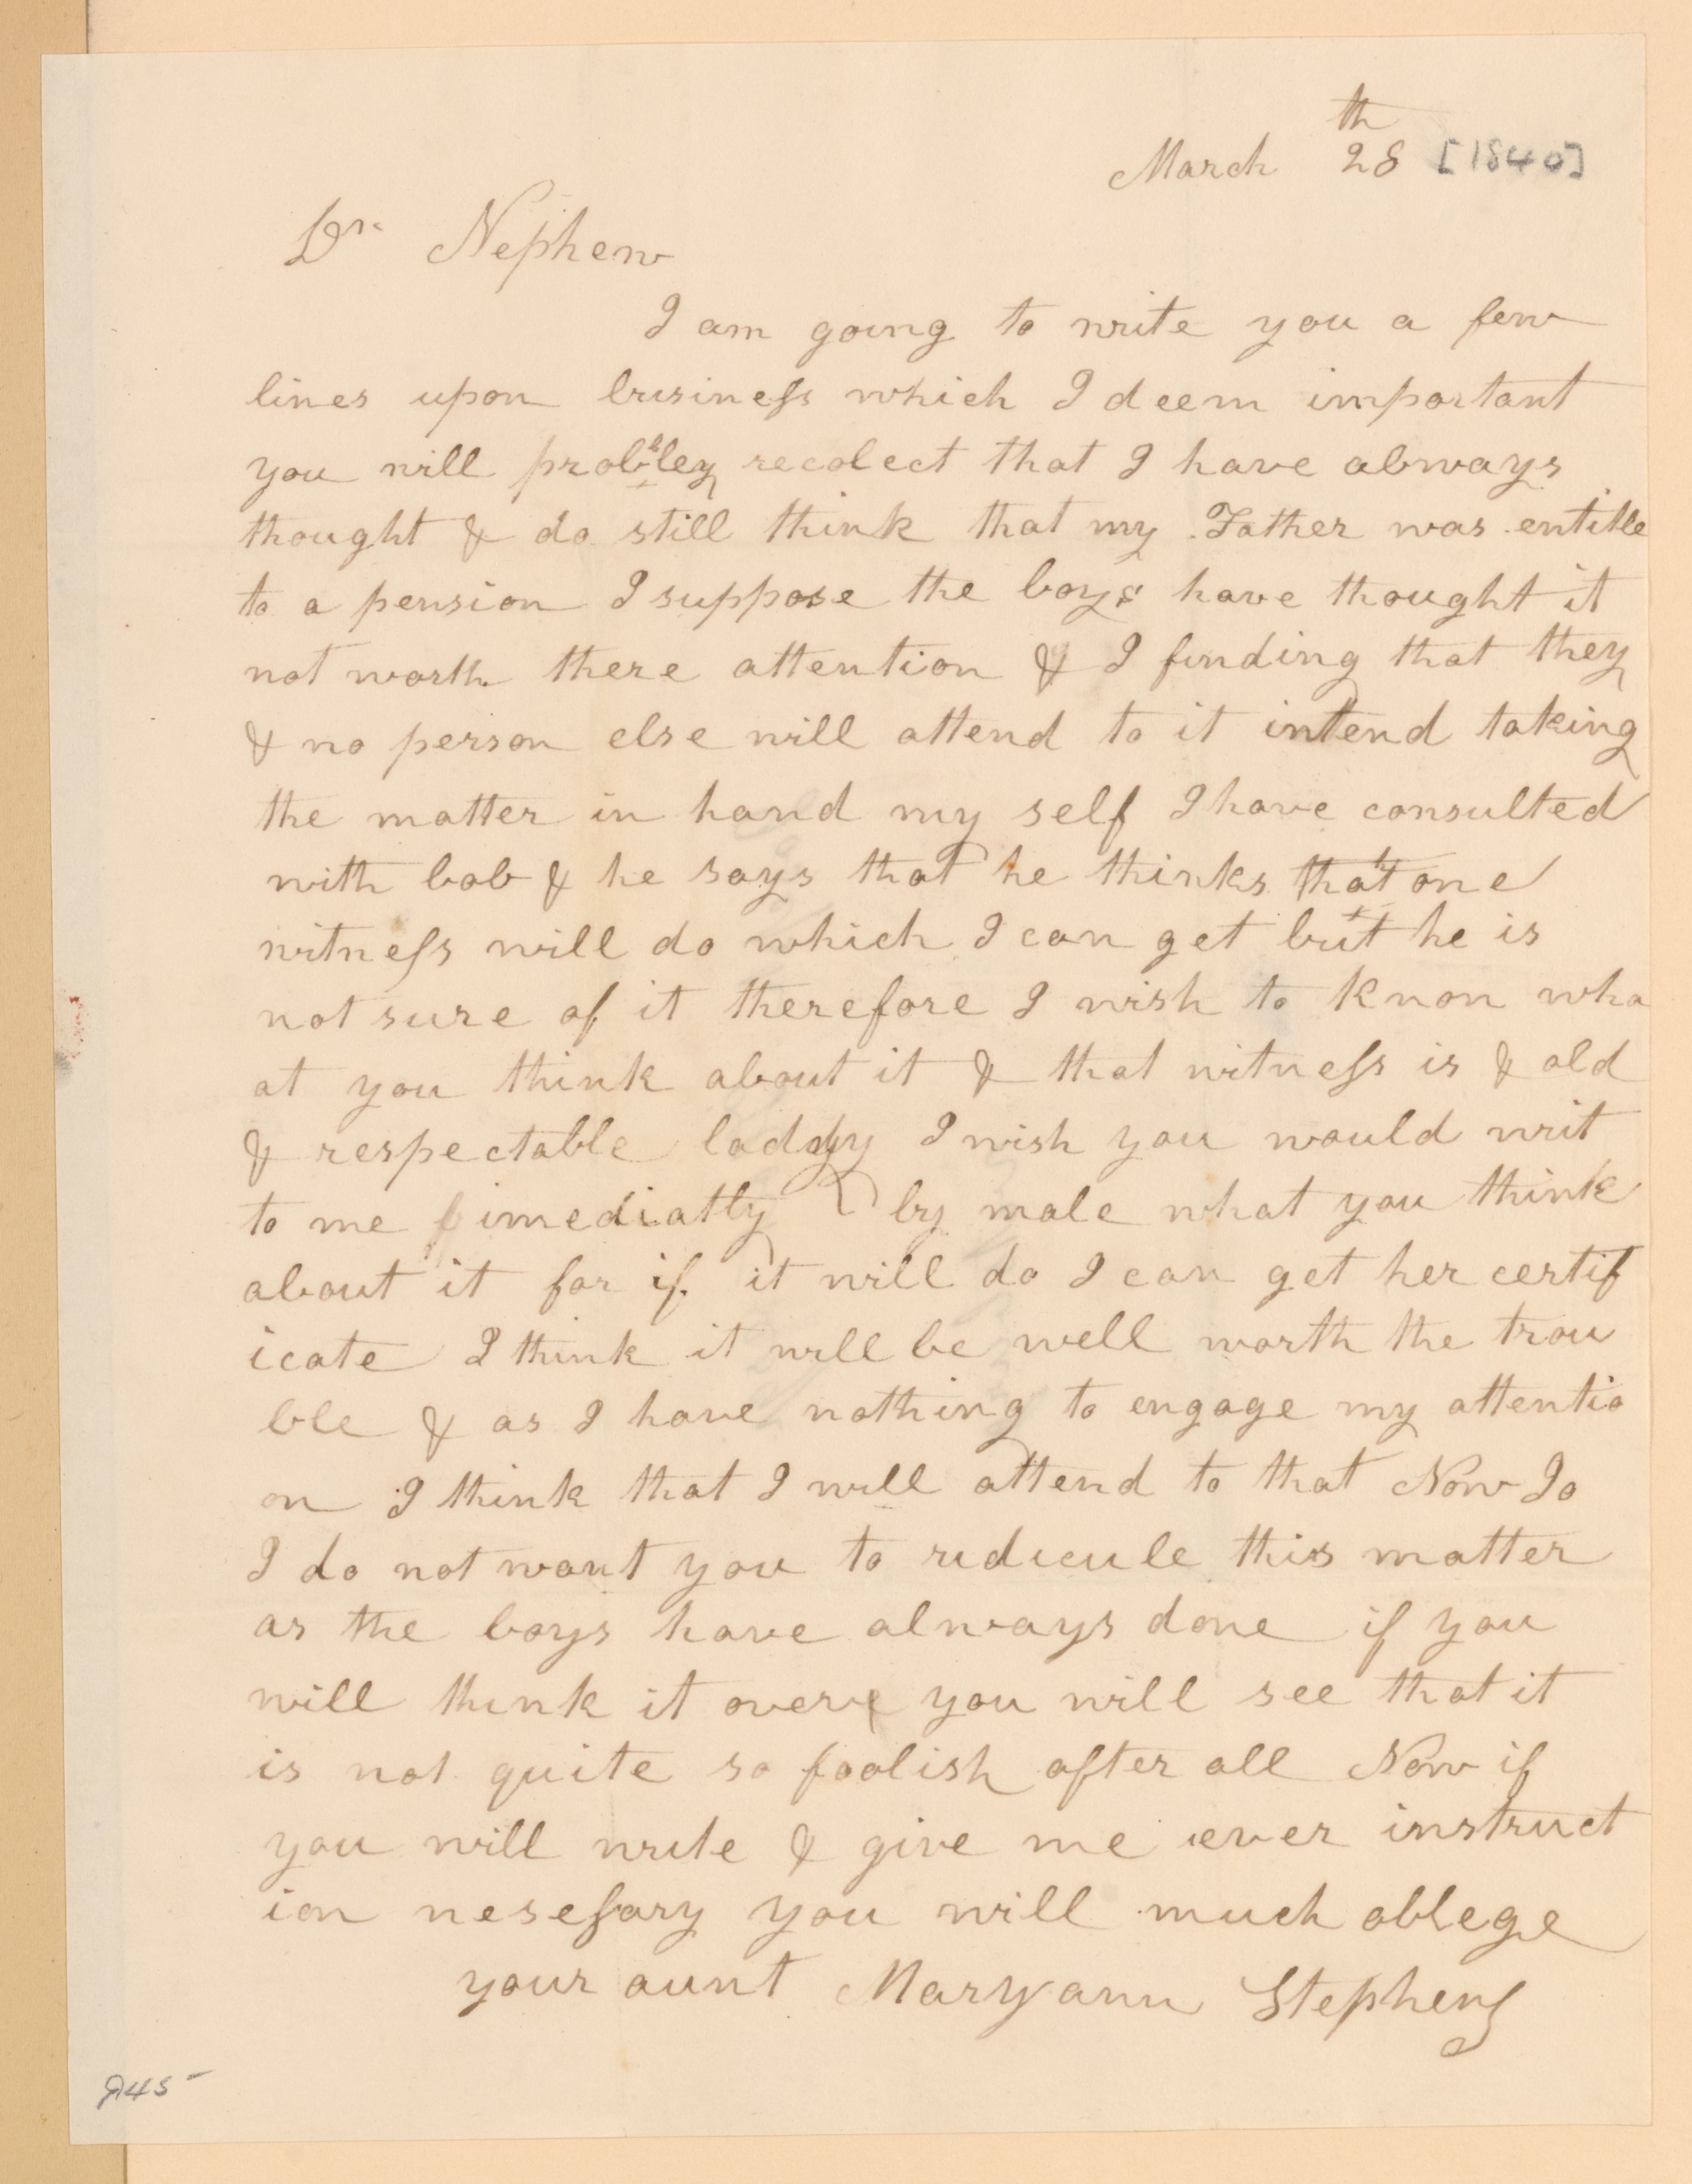 March 28th [1840]
Dr Nephew
I am going to write you a few
lines upon business which I deem important
you will probbley recolect that I have always
thought & do still think that my Father was entitle
to a pension I suppose the boys have thought it
not worth there attention & I finding that they
& no person else will attend to it intend taking
the matter in hand my self I have consulted
with bob & he says that he thinks that one
witness will do which I can get but he is
not sure of it therefore I wish to know wha
at you think about it & that witness is & old
& respectable laddy I wish you would writ
to me imediatly by male what you think
about it for if it will do I can get her certif
icate I think it will be well worth the trou
ble & as I have nothing to engage my attentio
on I think that I will attend to that Now Jo
I do not want you to ridicule this matter
as the boys have always done if you
will think it over you will see that it
is not quite so foolish after all Now if
you will write & give me ever instruct
ion nesessary you will much oblege
your aunt Maryann Stephens